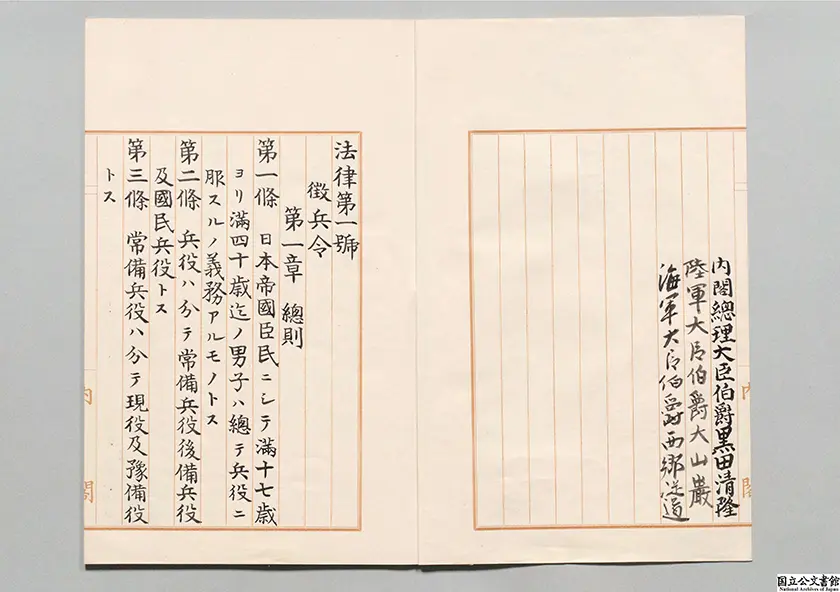 内閣總理大臣伯爵黒田清隆
陸軍大臣伯爵大山巖
海軍大臣伯爵西郷従道
内閣
法律第一號
徴兵令
第一章 總則
第一條 日本帝國臣民ニシテ滿十七歳
ヨリ滿四十歳迄ノ男子ハ總テ兵役ニ
服スルノ義務アルモノトス
第二條 兵役ハ分テ常備兵役後備兵役
及國民兵役トス
第三條 常備兵役ハ分テ現役及豫備役
トス
内閣
国立公文書館
National Archives of Japan